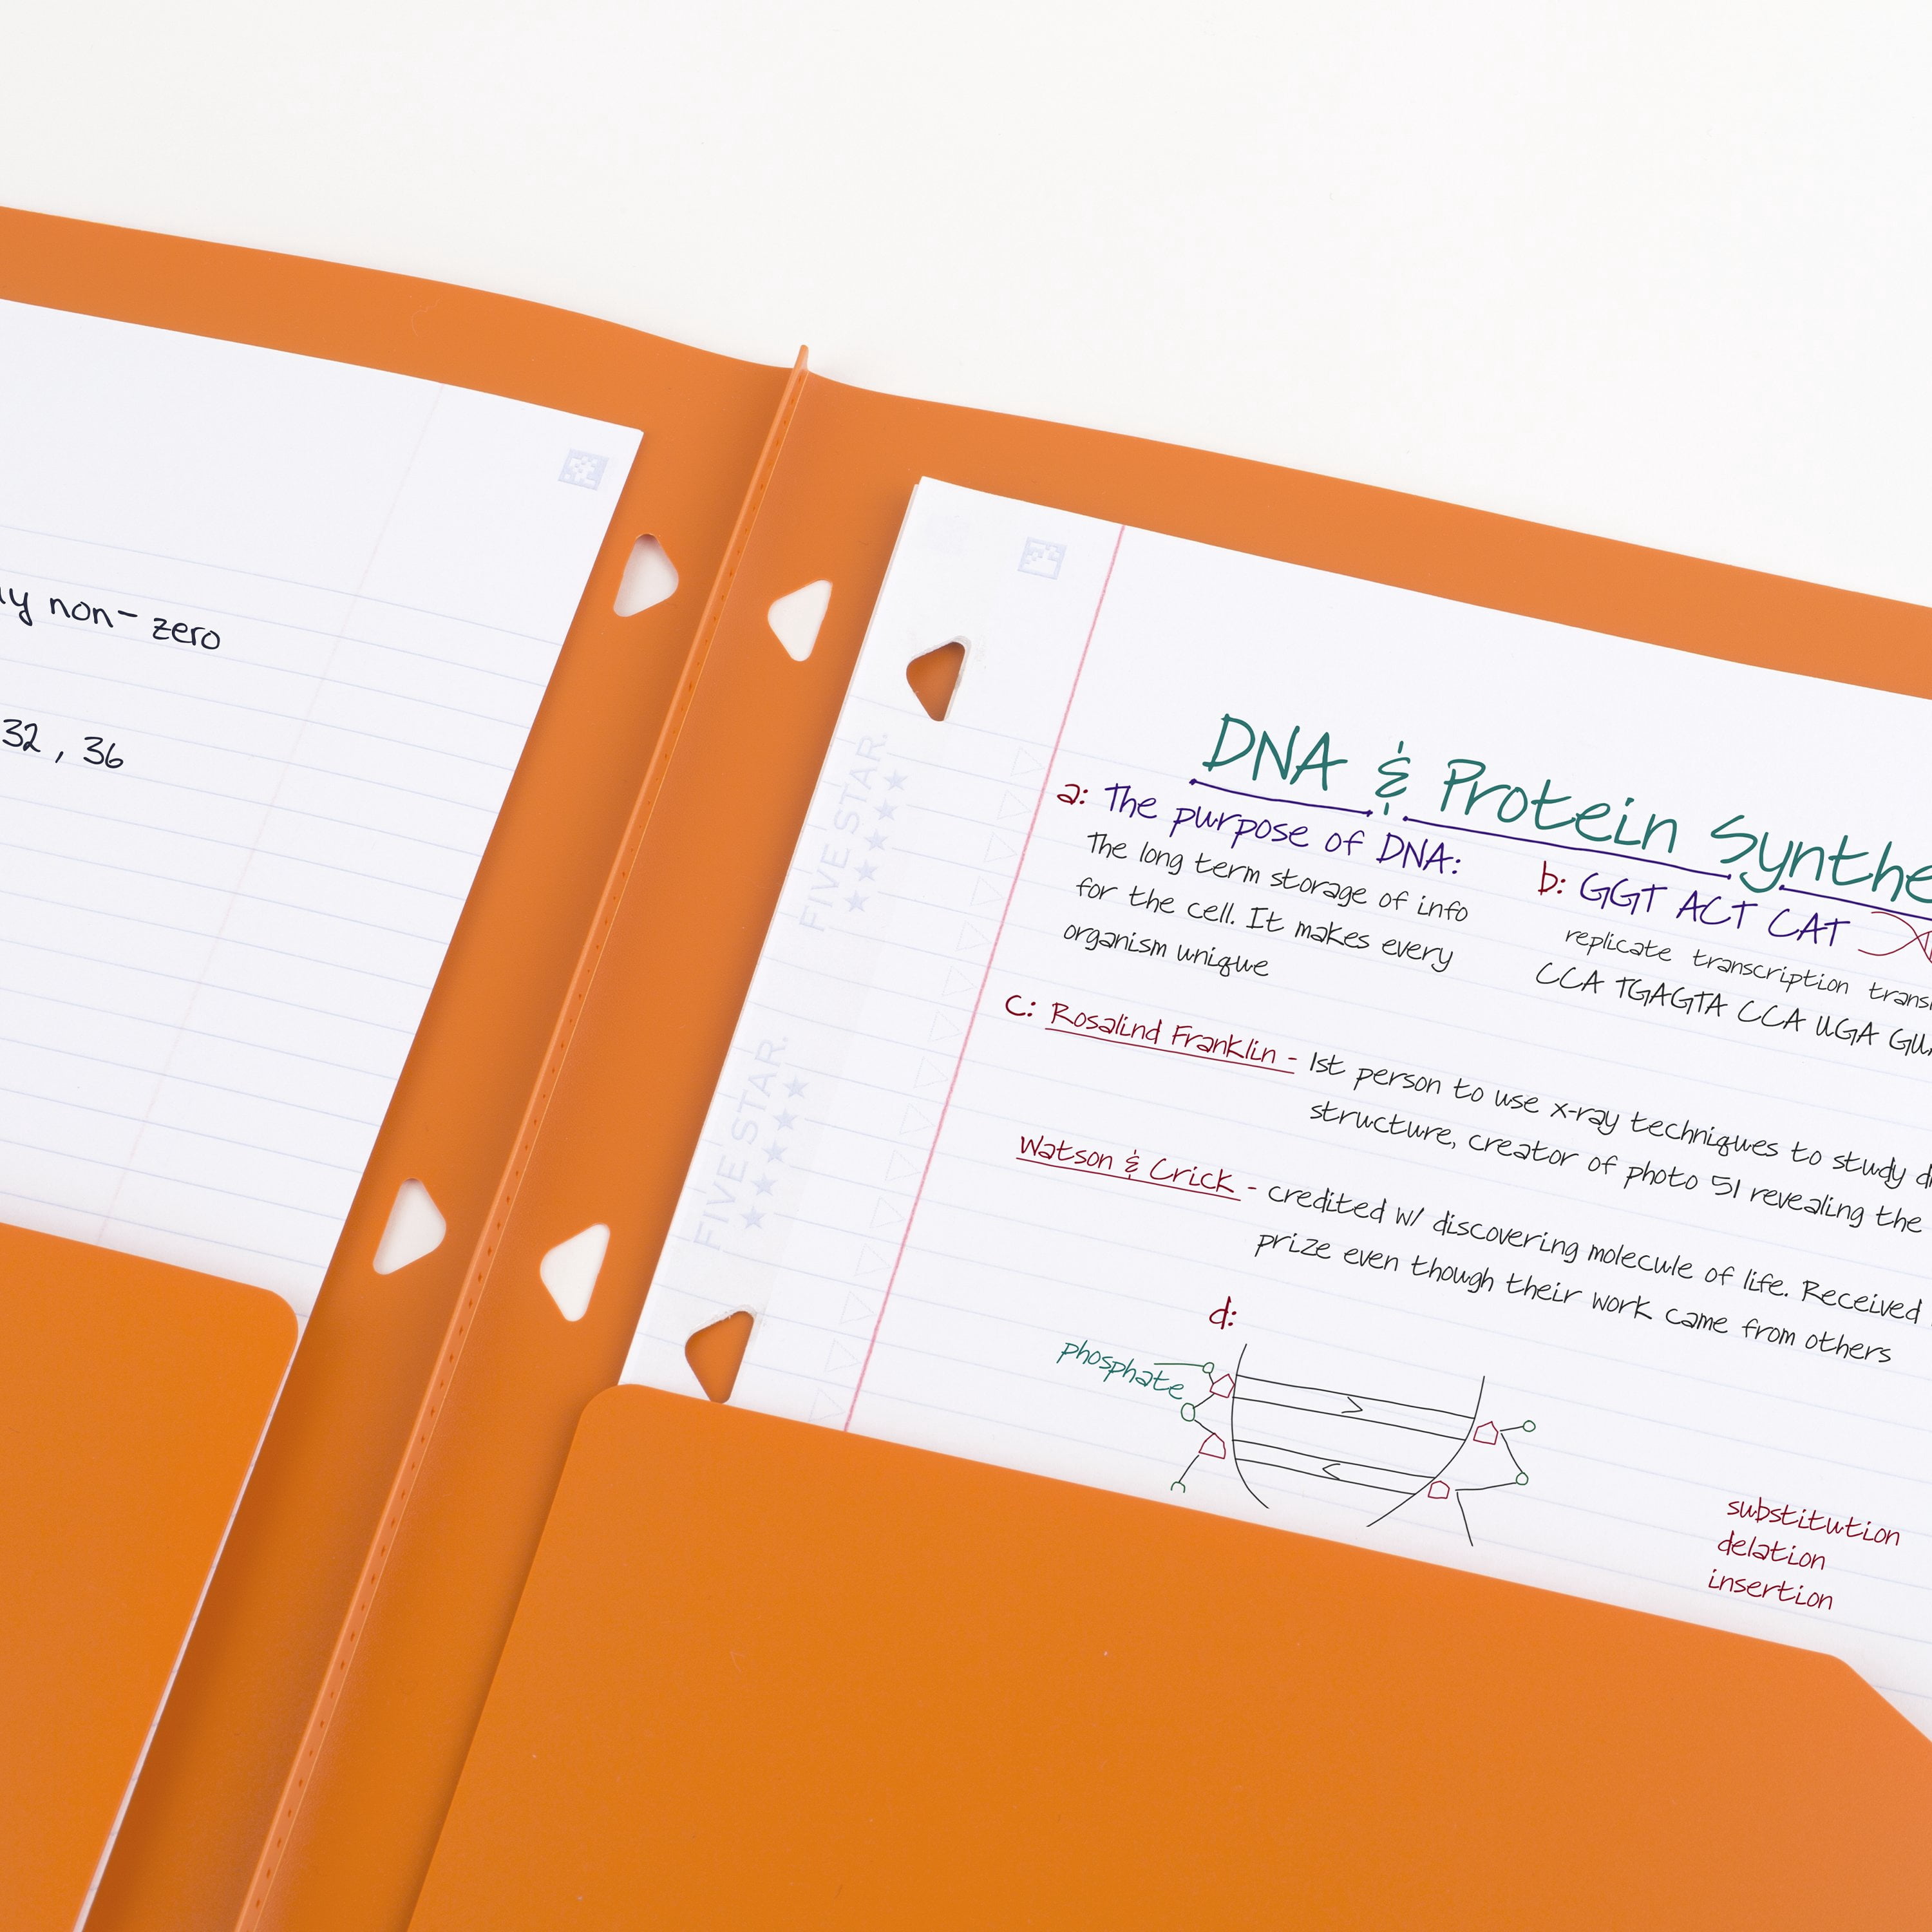 non- zero
32, 36
FIVE STAR.
FIVE STAR.
DNA & Protein Synthe
a: The purpose of DNA:
The long term storage of info
for the cell. It makes every
organism unique
b: GGT ACT CAT
replicate transcription trans
CCA TGAGTA CCA UGA GU
c: Rosalind Franklin - 1st person to use x-ray techniques to study d
structure, creator of photo 51 revealing the
Watson & Crick - credited w/ discovering molecule of life. Received
prize even though their work came from others
d:
phosphate
substitution
delation
insertion